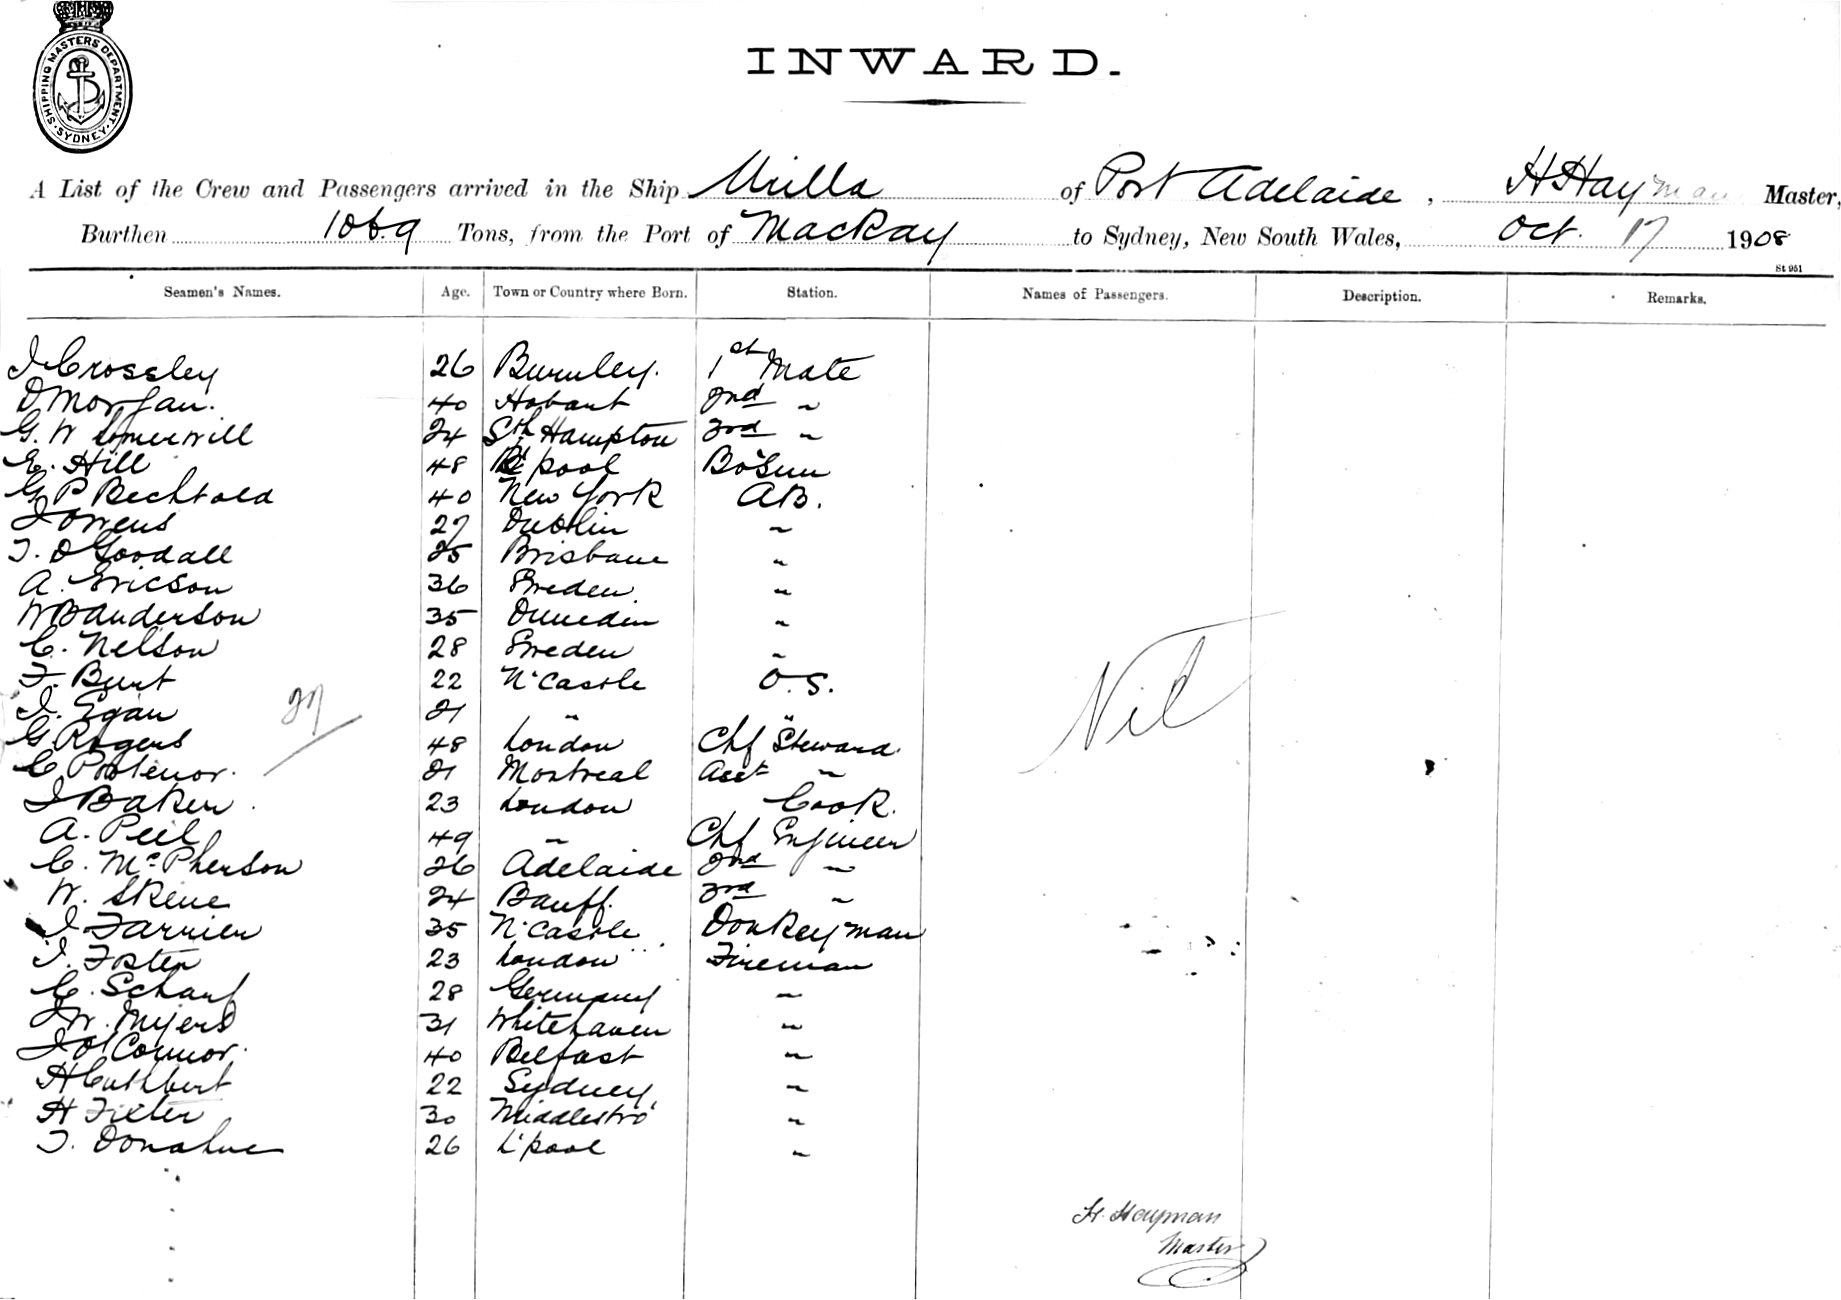 SHIPPING MASTERS DEPARTMENT. SYDNEY.
INWARD.
A List of the Crew and Passengers arrived in the Ship Urilla of Port Adelaide, H Hayman Master,
Burthen 1069 Tons, from the Port of Mackay to Sydney, New South Wales, Oct. 17 1908
St 951
Seamen's Names. Age. Town or Country where Born. Station. Names of Passengers. Description. Remarks.
J Crossley 26 Burnley. 1st Mate
D Morgan. 40 Hobart 2nd "
G. W Somerwill 24 Sth Hampton 3rd "
E. Hill 48 pool Bo'sun
G P Bechtold 40 New York AB.
J Owens 27 Dublin "
T. D Goodall 25 Brisbane "
A. Ericson 36 Sweden "
W B Anderson 35 Dunedin "
C. Nelson 28 Sweden "
F. Burt 22 N'Castle O.S.
J. Egan 21 " "
27
Nil
G Rogers 48 London Chf Steward
C 21 Montreal Asst "
J Baker. 23 London Cook.
A. Peel 49 " Chf Engineer
C. McPherson 26 Adelaide 2nd "
W. Skene 24 Banff. 3rd "
J Farrier 35 N'Castle Donkeyman
J. Foster 23 London Fireman
C. Scharf 28 Germany "
J W. Myers 31 Whitehaven "
J O'Connor. 40 Belfast "
H Cuthbert 22 Sydney "
H 30 Middlesbro' "
T. Donahue 26 L'pool "
H. Hayman
Master